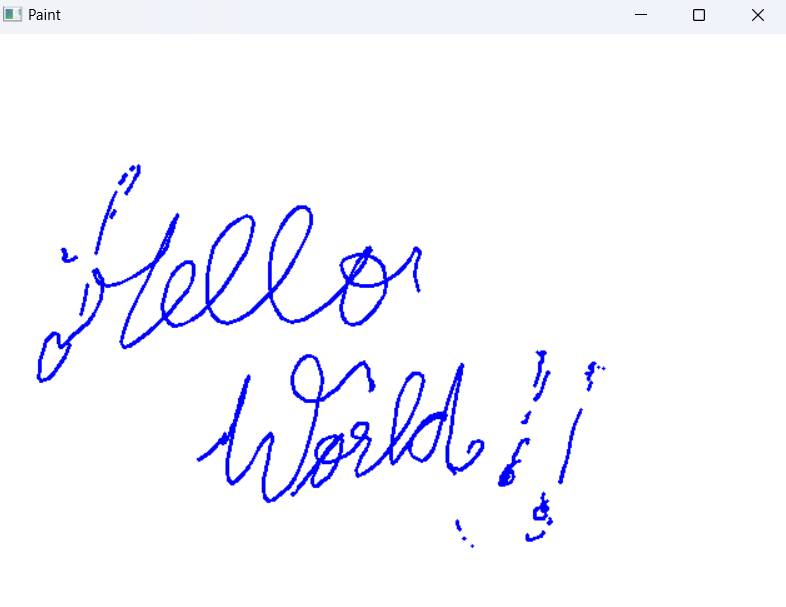 Paint
Hello
World!!